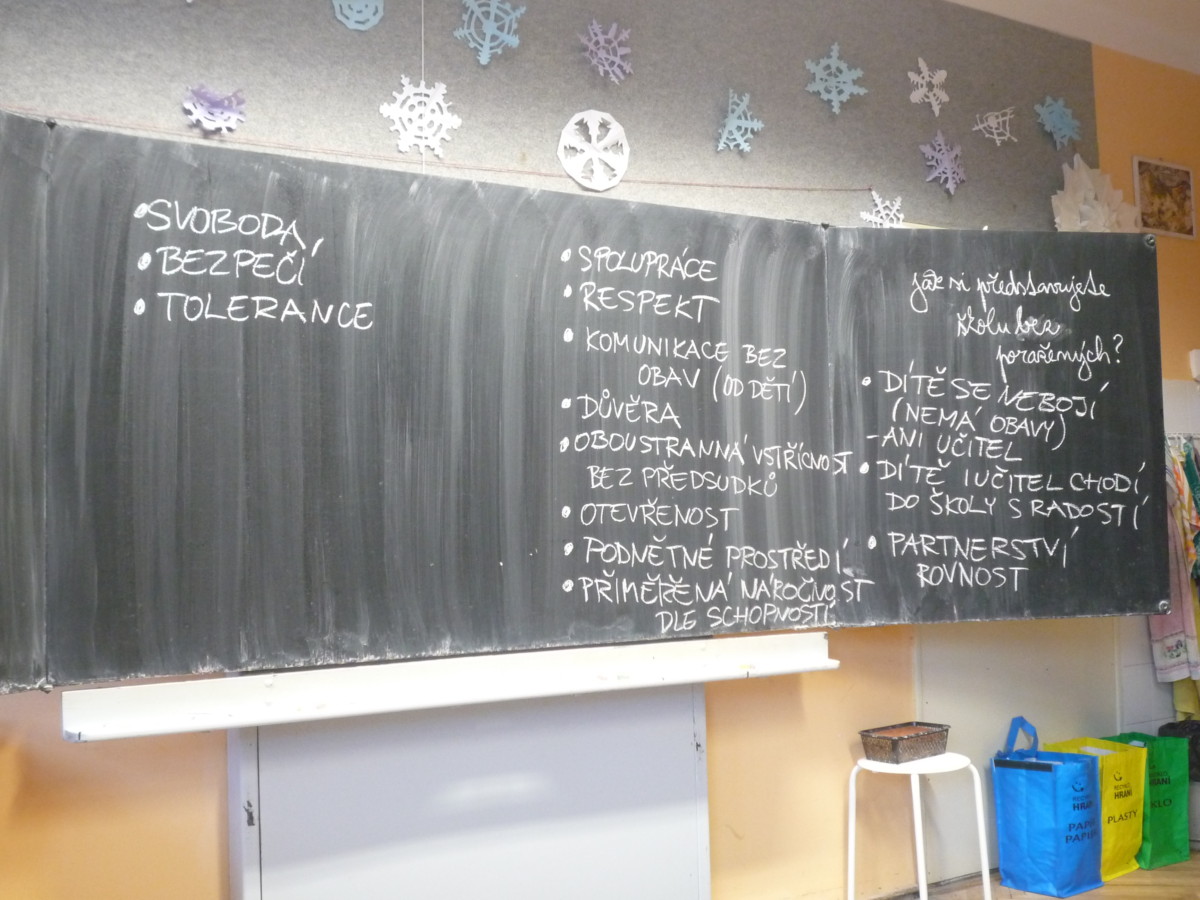 • SVOBODA,
• BEZPEČÍ
• TOLERANCE
• SPOLUPRÁCE
• RESPEKT
• KOMUNIKACE BEZ
OBAV (OD DĚTÍ)
• DŮVĚRA
• OBOUSTRANNÁ VSTŘÍCNOST
BEZ PŘEDSUDKŮ
• OTEVŘENOST
• PODNĚTNÉ PROSTŘEDÍ
• PŘIMĚŘENÁ NÁROČNOST
DLE SCHOPNOSTÍ
Jak si představujete
školu bez
poražených?
• DÍTĚ SE NEBOJÍ
(NEMÁ OBAVY)
- ANI UČITEL
• DÍTĚ I UČITEL CHODÍ
DO ŠKOLY S RADOSTÍ
• PARTNERSTVÍ
ROVNOST
HRANÍ
PAPÍR
HRANÍ
PLASTY
SKLO